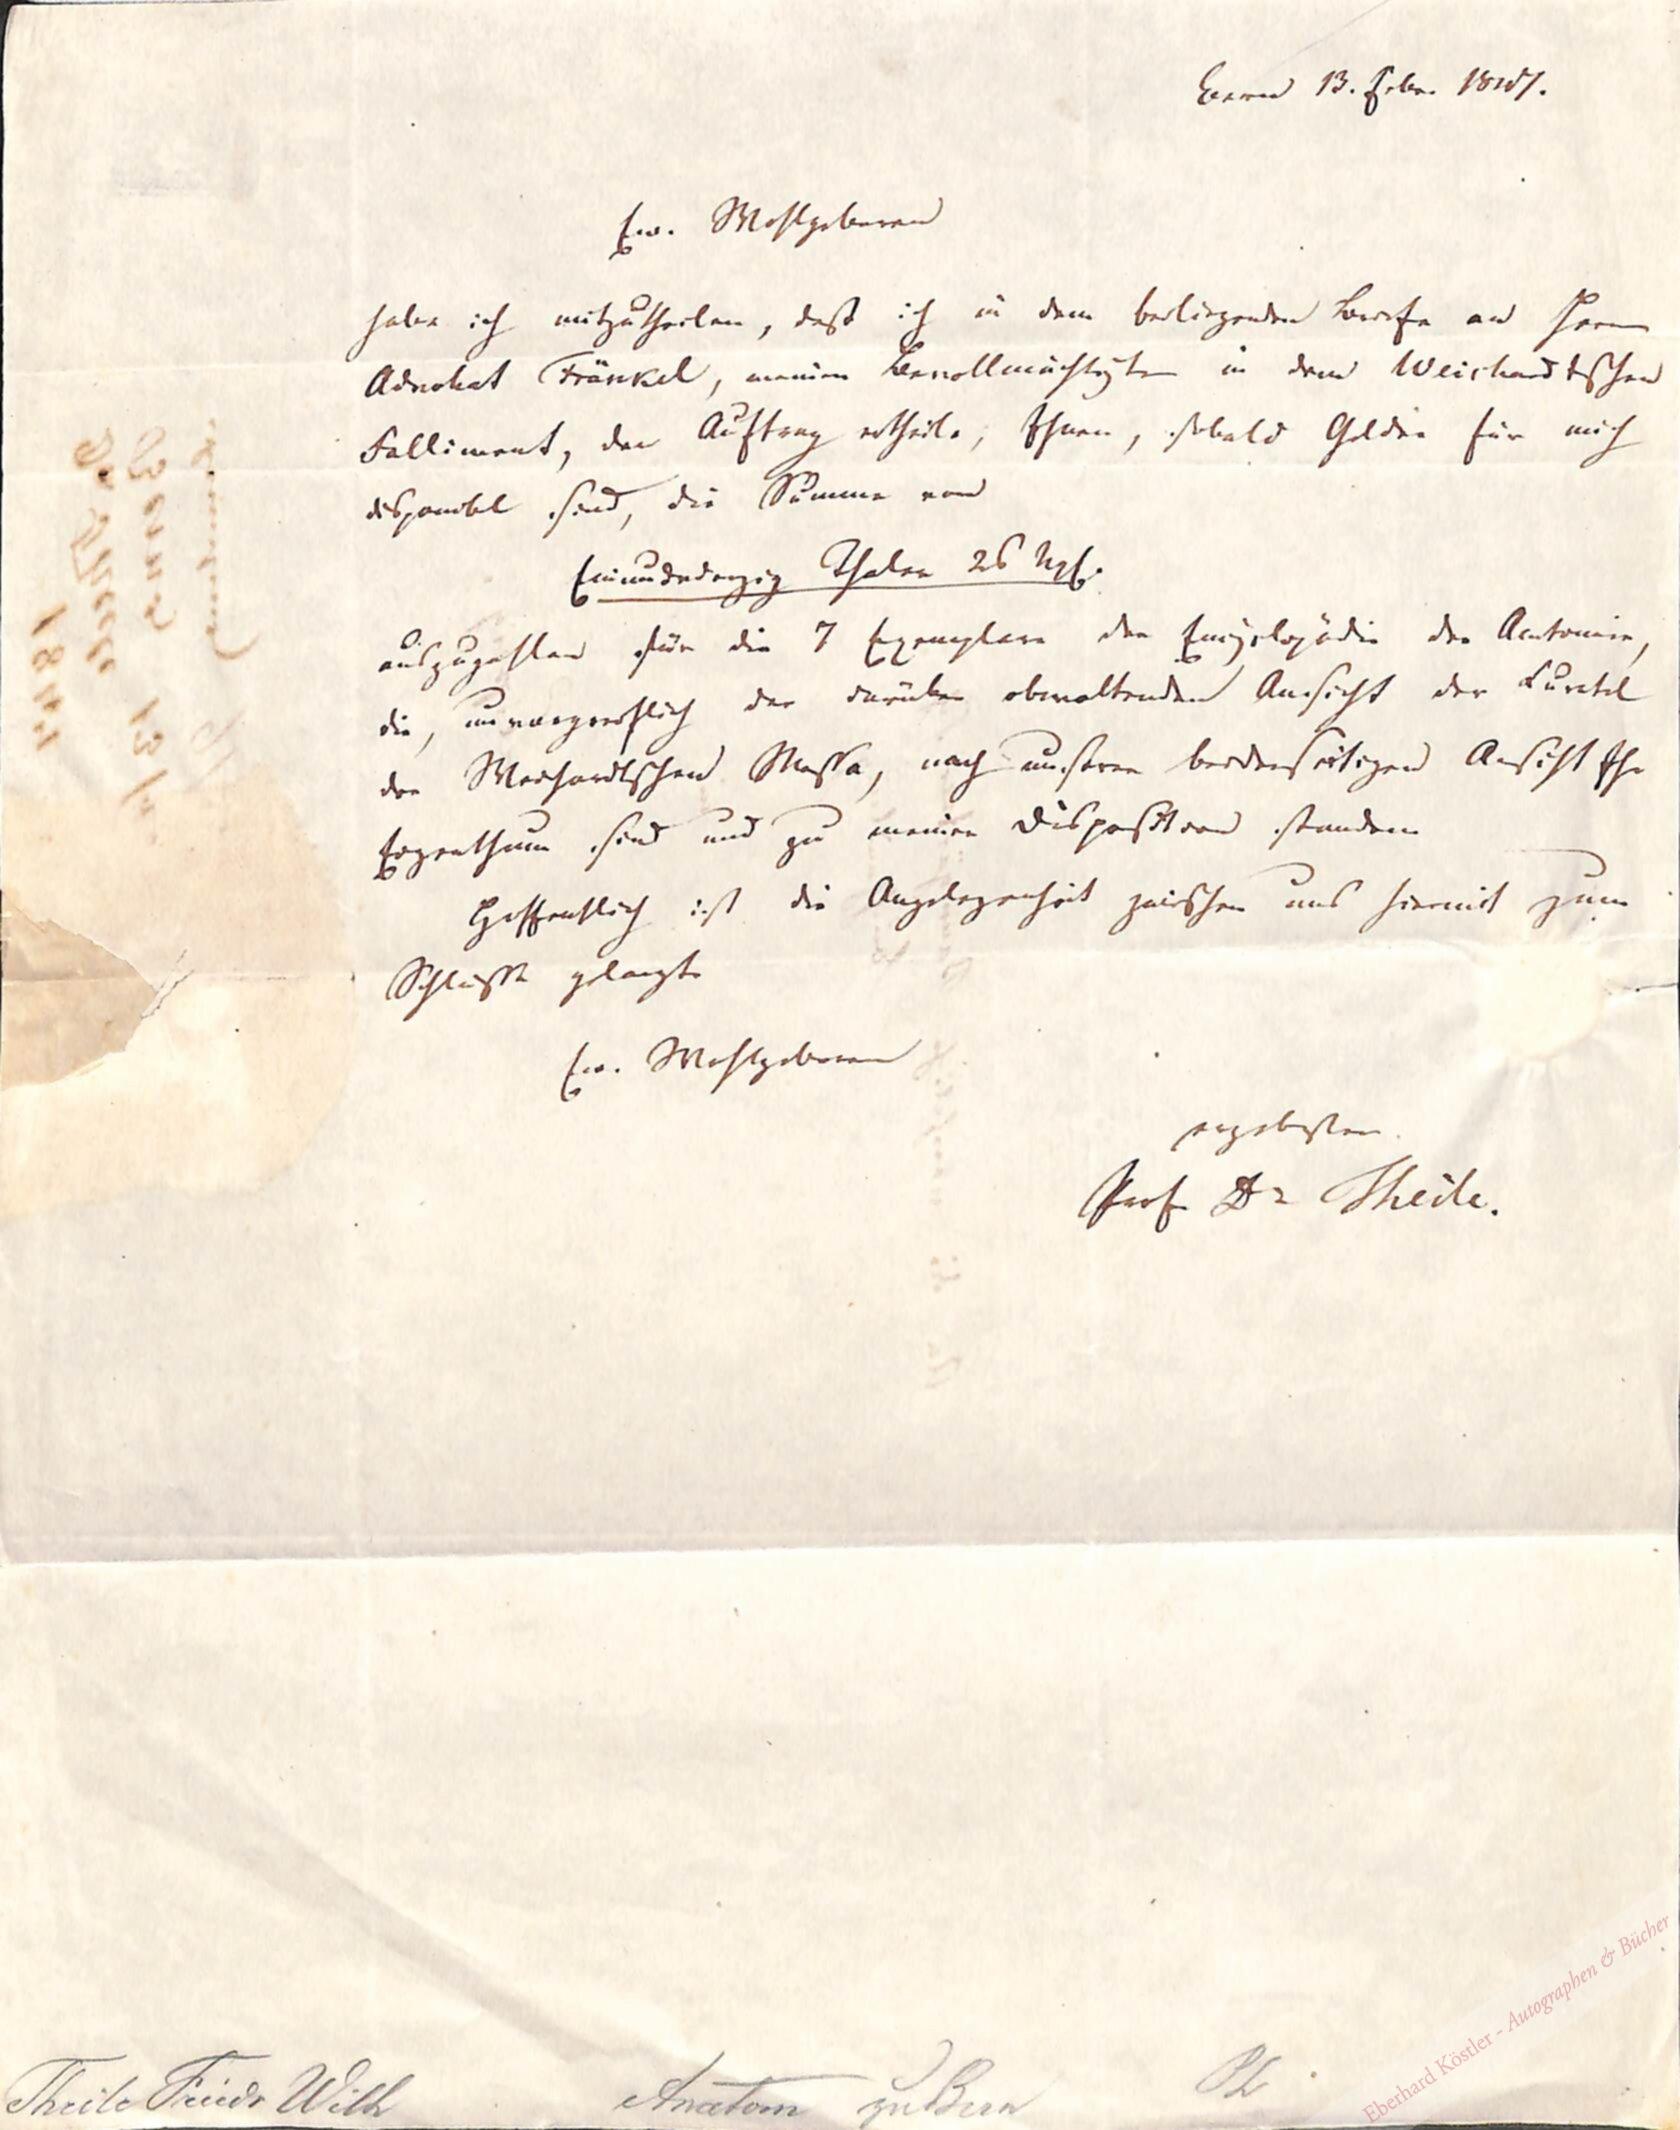 Bern 13. Febr. 1841.
Ew. Wohlgeboren
habe ich mitzutheilen, daß ich in dem beiliegenden Briefe an Herrn
Advokat Fränkel, meinen Bevollmächtigten in dem Weichardtschen
Falliment, den Auftrag ertheile, Ihnen, sobald Gelder für mich
disponibel sind, die Summe von
Thaler 26 Ngr.
auszuzahlen für die 7 Exemplare der Encyclopädie der Anatomie,
die, unvorgreiflich der darüber obwaltenden Ansicht der Curatel
der Weichardtschen Massa, nach unserer beiderseitigen Ansicht Ihr
Eigenthum sind und zu meiner Disposition standen.
Hoffentlich ist die Angelegenheit zwischen uns hiermit zum
Schlusse gelangt.
Ew. Wohlgeboren
ergebenster
Prof. Dr Theile.
Theile Friedr Wilh Anatom zu Bern
Eberhard Köstler - Autographen & Bücher